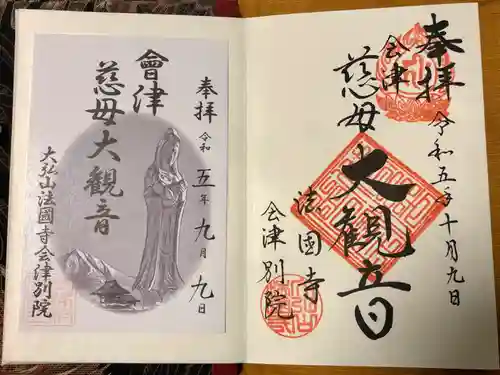 奉拝
会津
慈母
大観音
令和五年十月九日
法國寺
会津別院
奉拝
令和
五年九月九日
會津
慈母大観音
大弘山法國寺会津別院